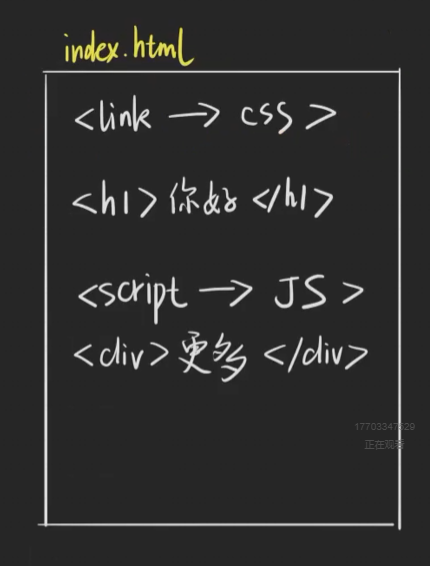 index.html
<link → css>
<h1>你好</h1>
<script → JS>
<div>更多</div>
17703347529
正在观看